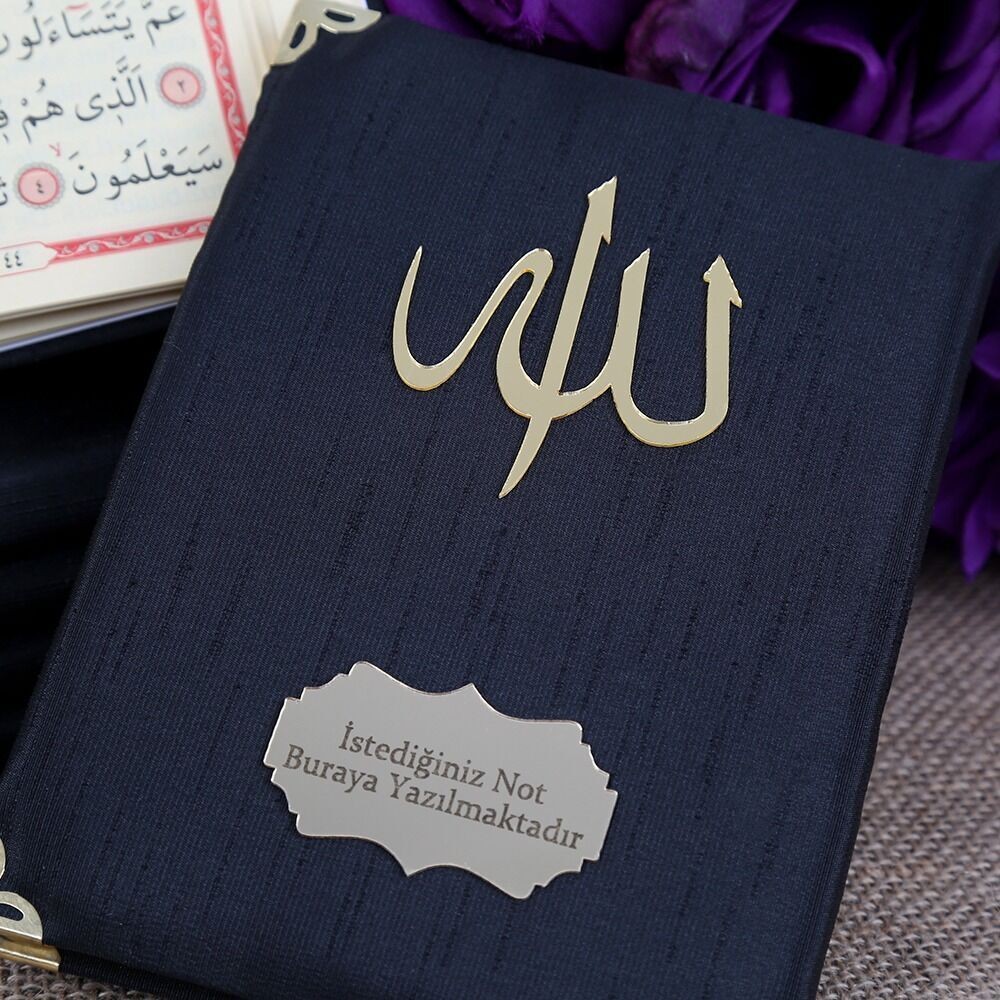 عَمَّ يَتَسَاءَلُونَ
٢ اَلَّذِى هُمْ
سَيَعْلَمُونَ ٤
٤٤
الله
İstediğiniz Not
Buraya Yazılmaktadır